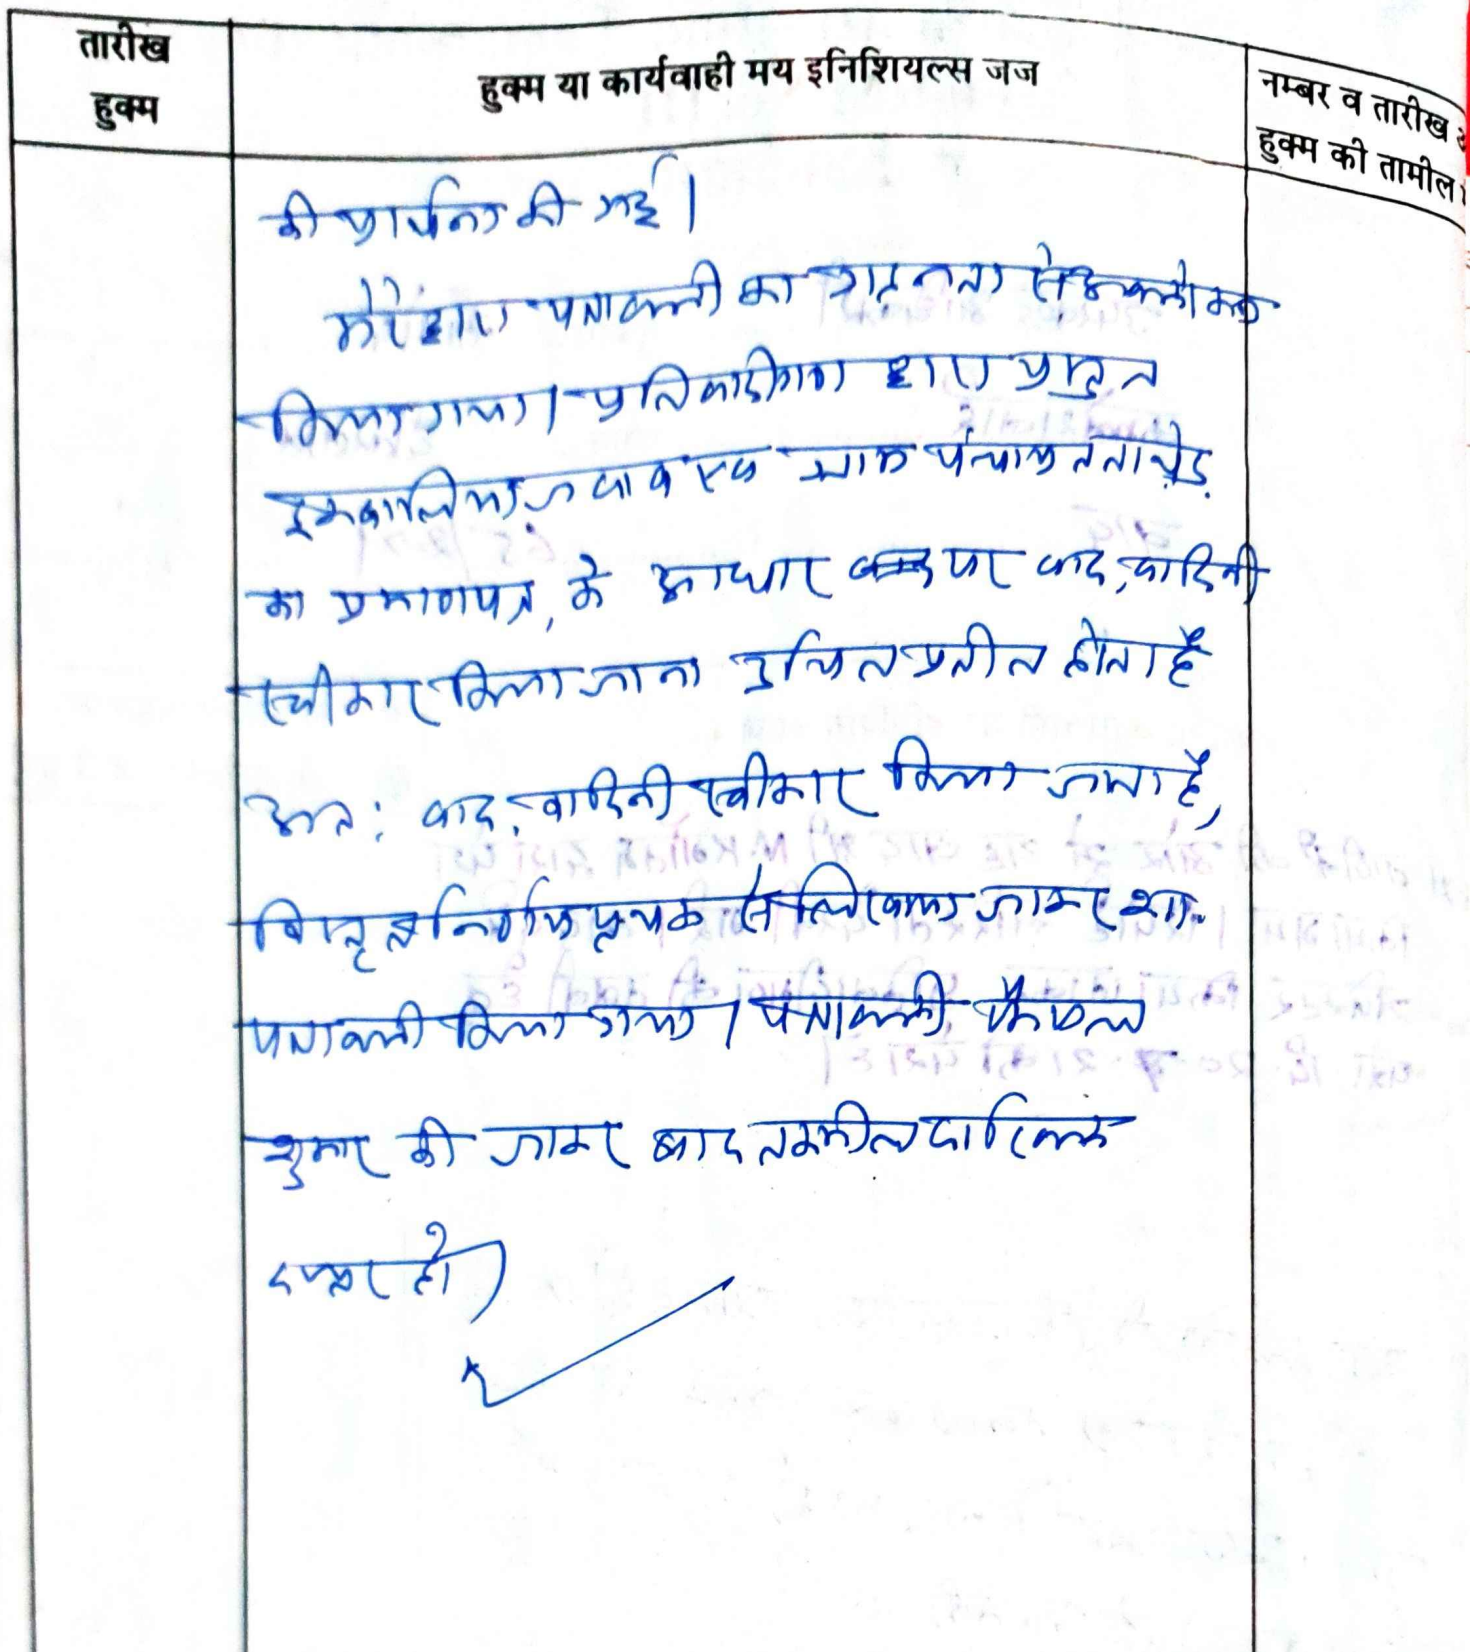 तारीख
हुक्म
हुक्म या कार्यवाही मय इनिशियल्स जज
नम्बर व तारीख
हुक्म की तामील
की प्रार्थना की गई।
मेरे द्वारा पत्रावली का गहनता से अवलोकन
किया गया। प्रतिवादीगण द्वारा प्रस्तुत
इकबालिया जवाब एवं ग्राम पंचायत
का प्रमाणपत्र, के आधार पर वाद, वादिनी
स्वीकार किया जाना उचित प्रतीत होता है
अतः वाद, वादिनी स्वीकार किया जाता है,
विस्तृत निर्णय पृथक से लिखाया जाकर शा.
पत्रावली किया गया। पत्रावली फैसल
शुमार की जाकर बाद तकमील दाखिल
दफ्तर हो।